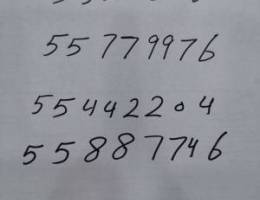 55779976
55442204
55887746